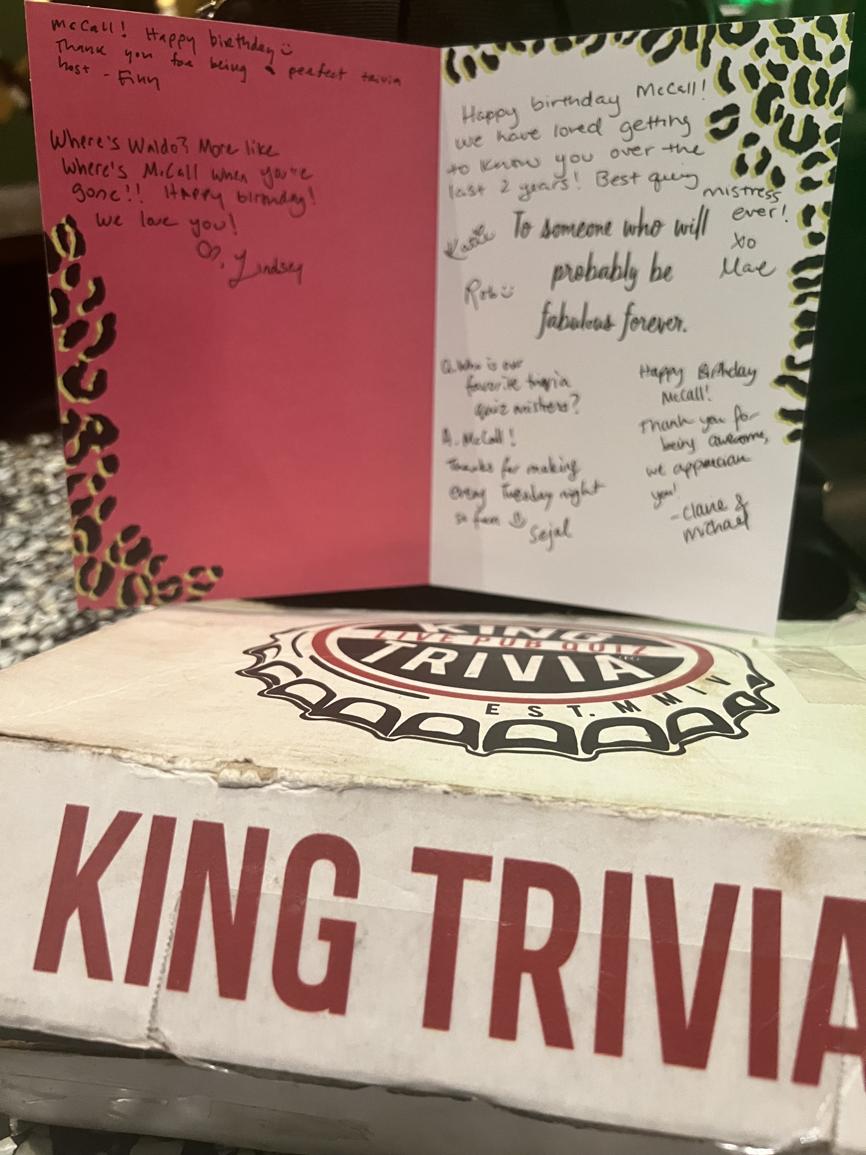 McCall! Happy birthday
Thank you for being a perfect trivia
host - Finn
Where's Waldo? More like
Where's McCall when you're
gone!! Happy birthday!
We love you!
♡, Lindsey
Happy birthday McCall!
we have loved getting
to know you over the
last 2 years! Best quiz mistress
ever!
xo
Mae
Katie
Rob
To someone who will
probably be
fabulous forever.
Q. Who is our
favorite trivia
quiz mistress?
A. McCall!
Thanks for making
every Tuesday night
so fun
Sejal
Happy Birthday
McCall!
Thank you for
being awesome,
we appreciate
you!
- Claire &
Michael
KING
LIVE PUB QUIZ
TRIVIA
EST. MMIV
KING TRIVIA